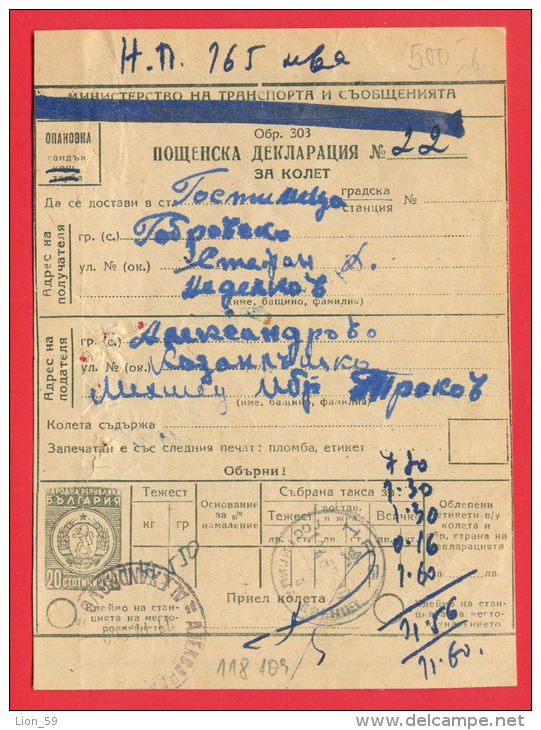 Н.П. 165 лв
500 лв.
МИНИСТЕРСТВО НА ТРАНСПОРТА И СЪОБЩЕНИЯТА
ОПАКОВКА
сандък
кош
торба
Обр. 303
ПОЩЕНСКА ДЕКЛАРАЦИЯ № 22
ЗА КОЛЕТ
Да се достави в ст. Гостилица градска станция №
Адрес на получателя
гр. (с.) Габровско
ул. № (ок.) Стефан
Неделков
(име, бащино, фамилия)
Адрес на подателя
гр. (с.) Александрово
ул. № (ок.) Казанлъшко
Троков
(име, бащино, фамилия)
Колета съдържа
Запечатан е със следния печат: пломба, етикет
Обърни!
НАРОДНА РЕПУБЛИКА
БЪЛГАРИЯ
20 СТОТИНКИ
Тежест
кг гр
Основание за % намаление
Събрана такса за:
Тежест
достан. и жел.
Всичко
лв. ст. лв. ст. лв. ст.
Облепени етикети в/у колета и обр. страна на декларацията
лв.
7 30
1.30
1.30
0.16
1.60
11.56
11.60.
Приел колета
Клеймо на станцията на местоподаването
Клеймо на станцията на местоназначението
ALEXANDROVO
118 104
Lion_59